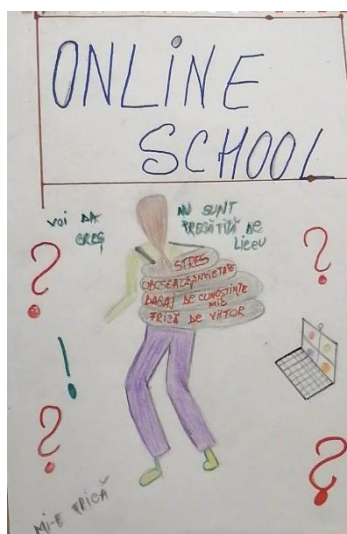 ONLINE
SCHOOL
VOI DA
GREȘ
NU SUNT
PREGĂTITĂ DE
LICEU
STRES
OBOSEALĂ, ANXIETATE
BAGAJ DE CUNOȘTINȚE
MIC
FRICĂ DE VIITOR
?
?
!
?
?
MI-E FRICĂ